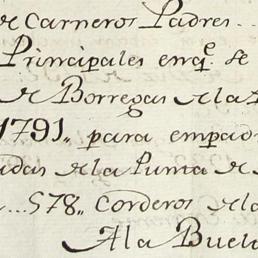 de Carneros Padres..
Principales enq.e se
de Borregas de la
1791,, para empad
das de la Punta de
...578,, Corderos de la
A la Buel